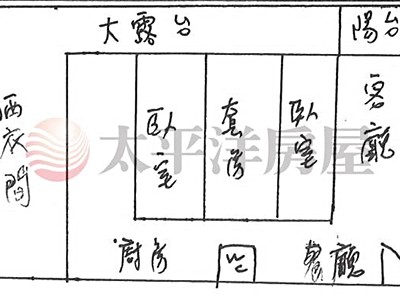 大露台
陽台
洒衣間
臥室
套房
臥室
客廳
太平洋房屋
廚房
餐廳